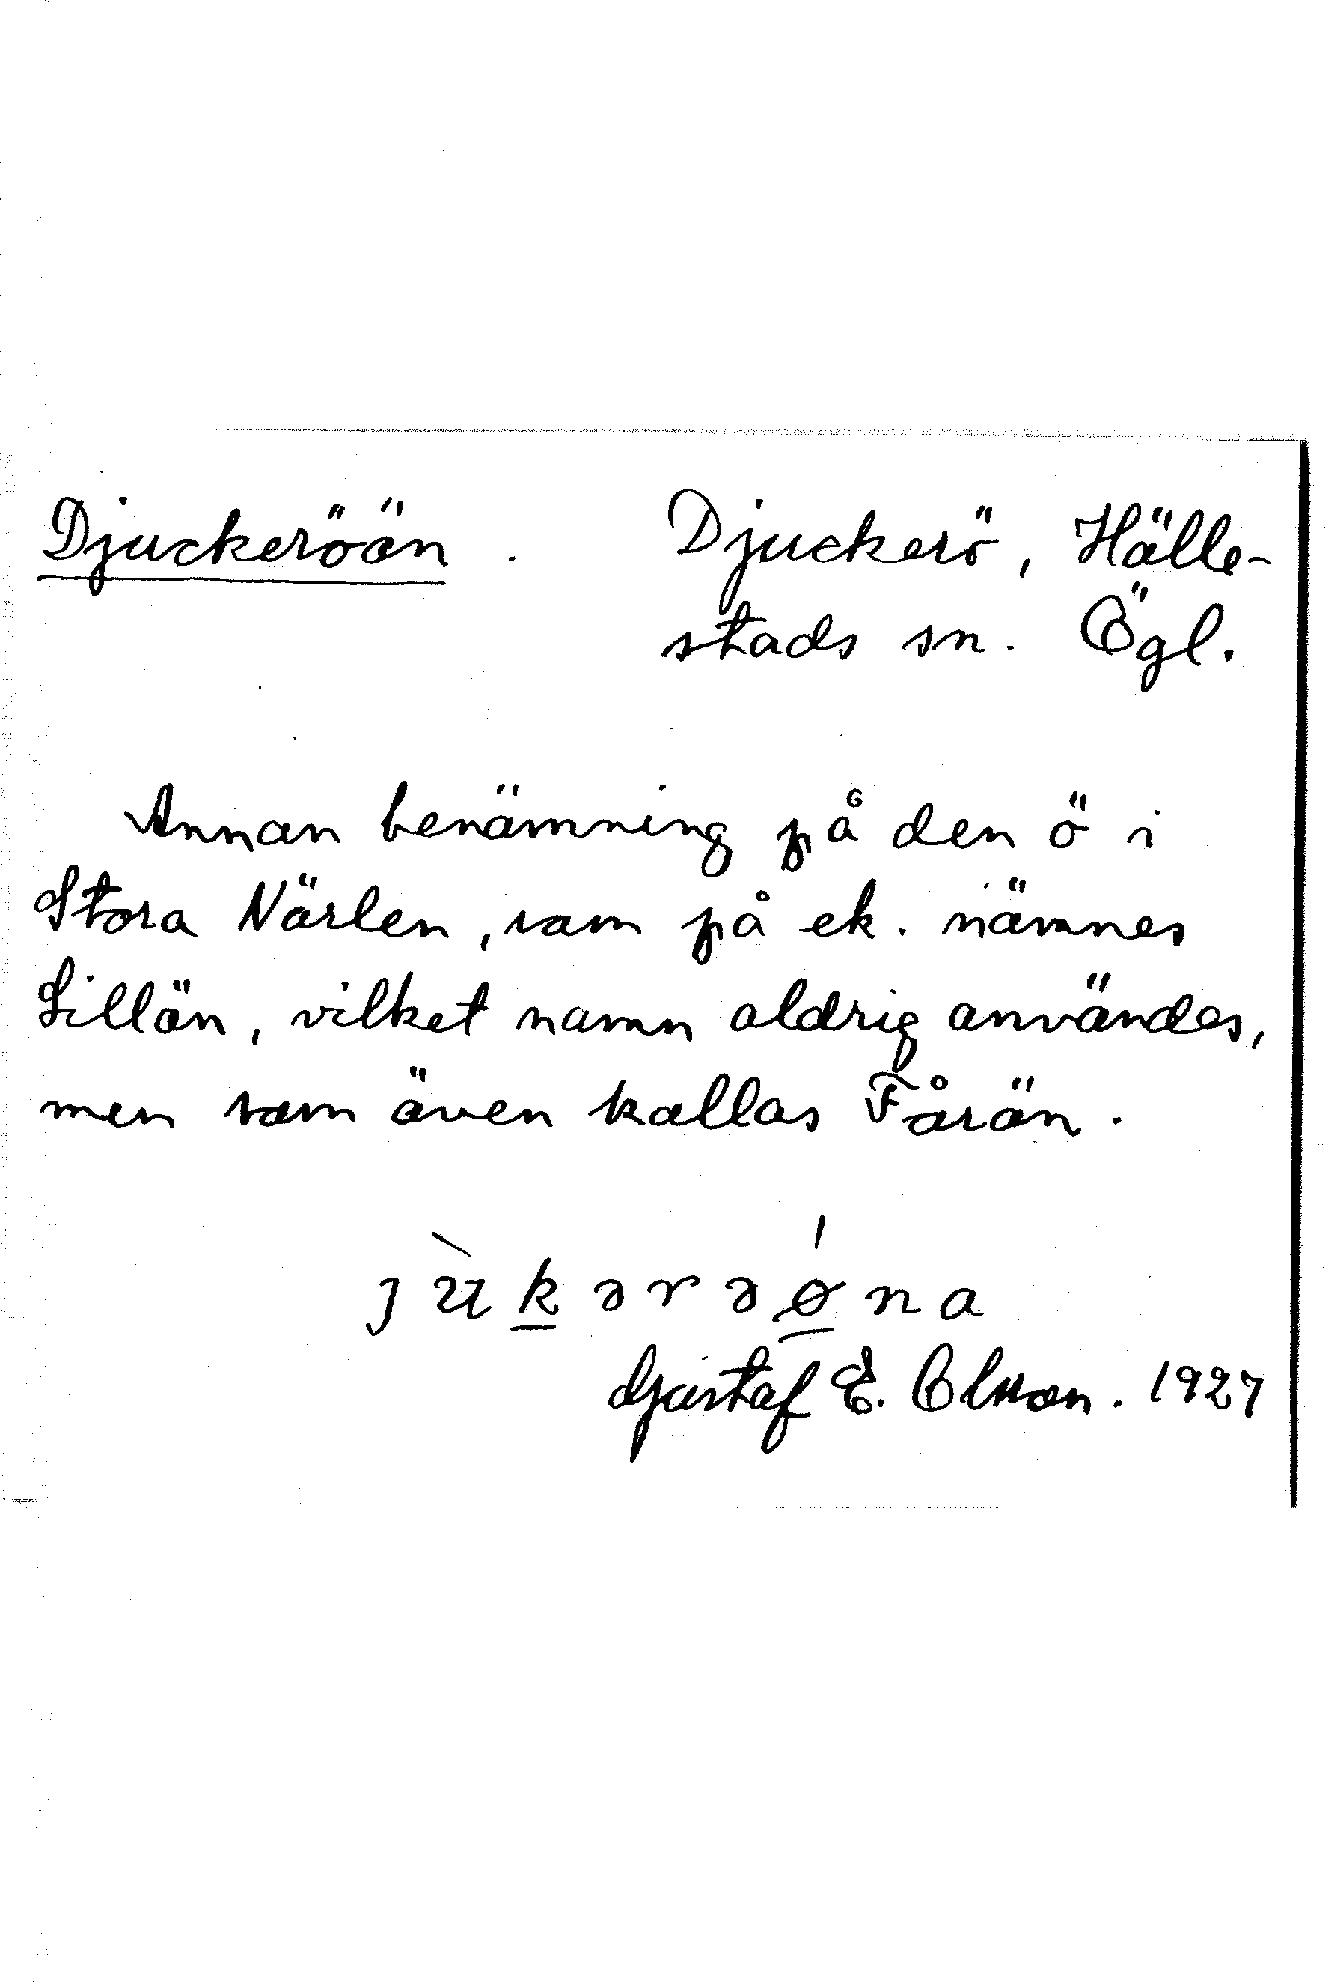 Djuckeröön. Djuckerö, Hälle-
stads sn. Ögl.
Annan benämning på den ö i
Stora Närlen, som på ek. nämnes
Lillön, vilket namn aldrig användes,
men som även kallas Fårön.
jùkərəǿna
Gustaf E. Olsson. 1927